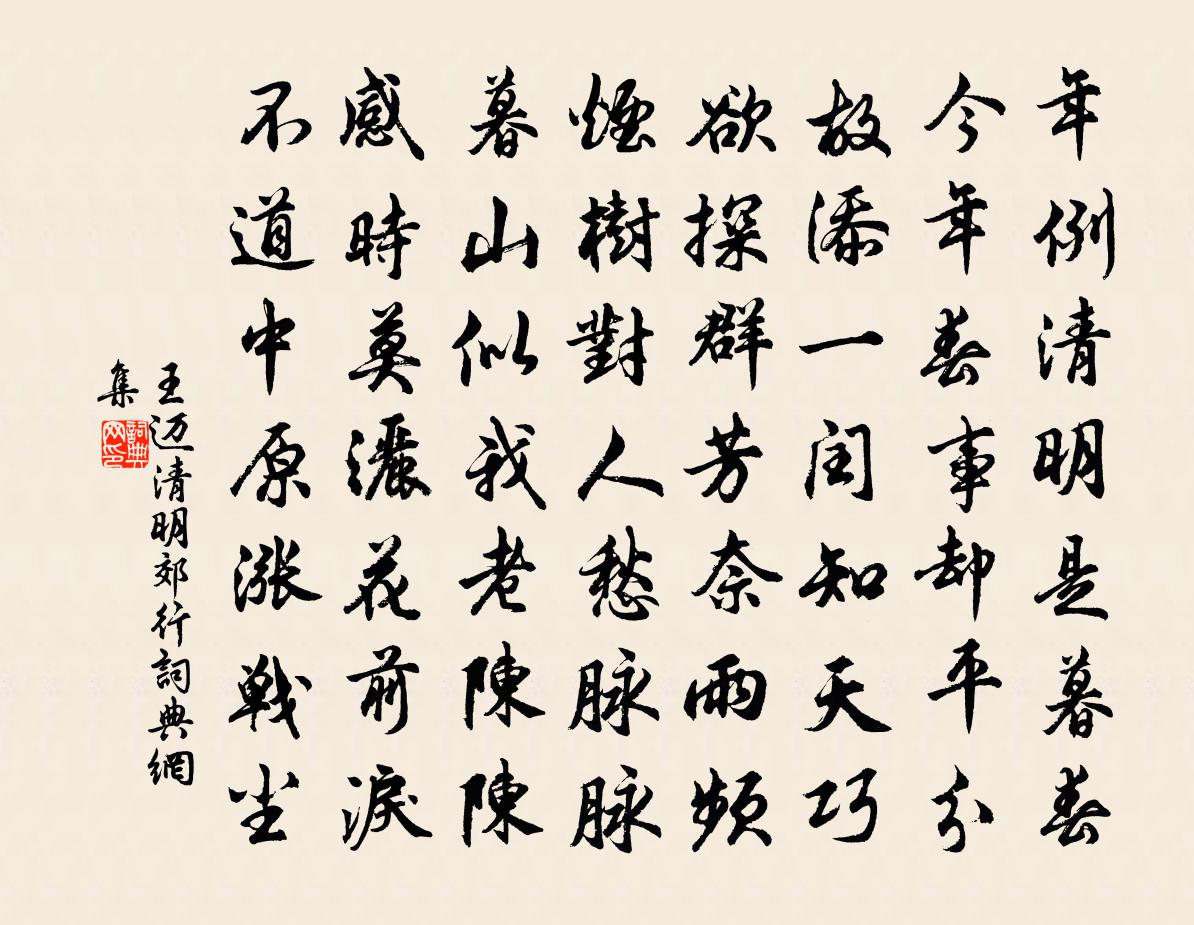 年例清明是暮春
今年春事却平分
故添一閏知天巧
欲探群芳奈雨頻
煙樹對人愁脉脉
暮山似我老陳陳
感時莫灑花前淚
不道中原漲戰尘
王迈清明郊行詞典網
集
詞典
网印